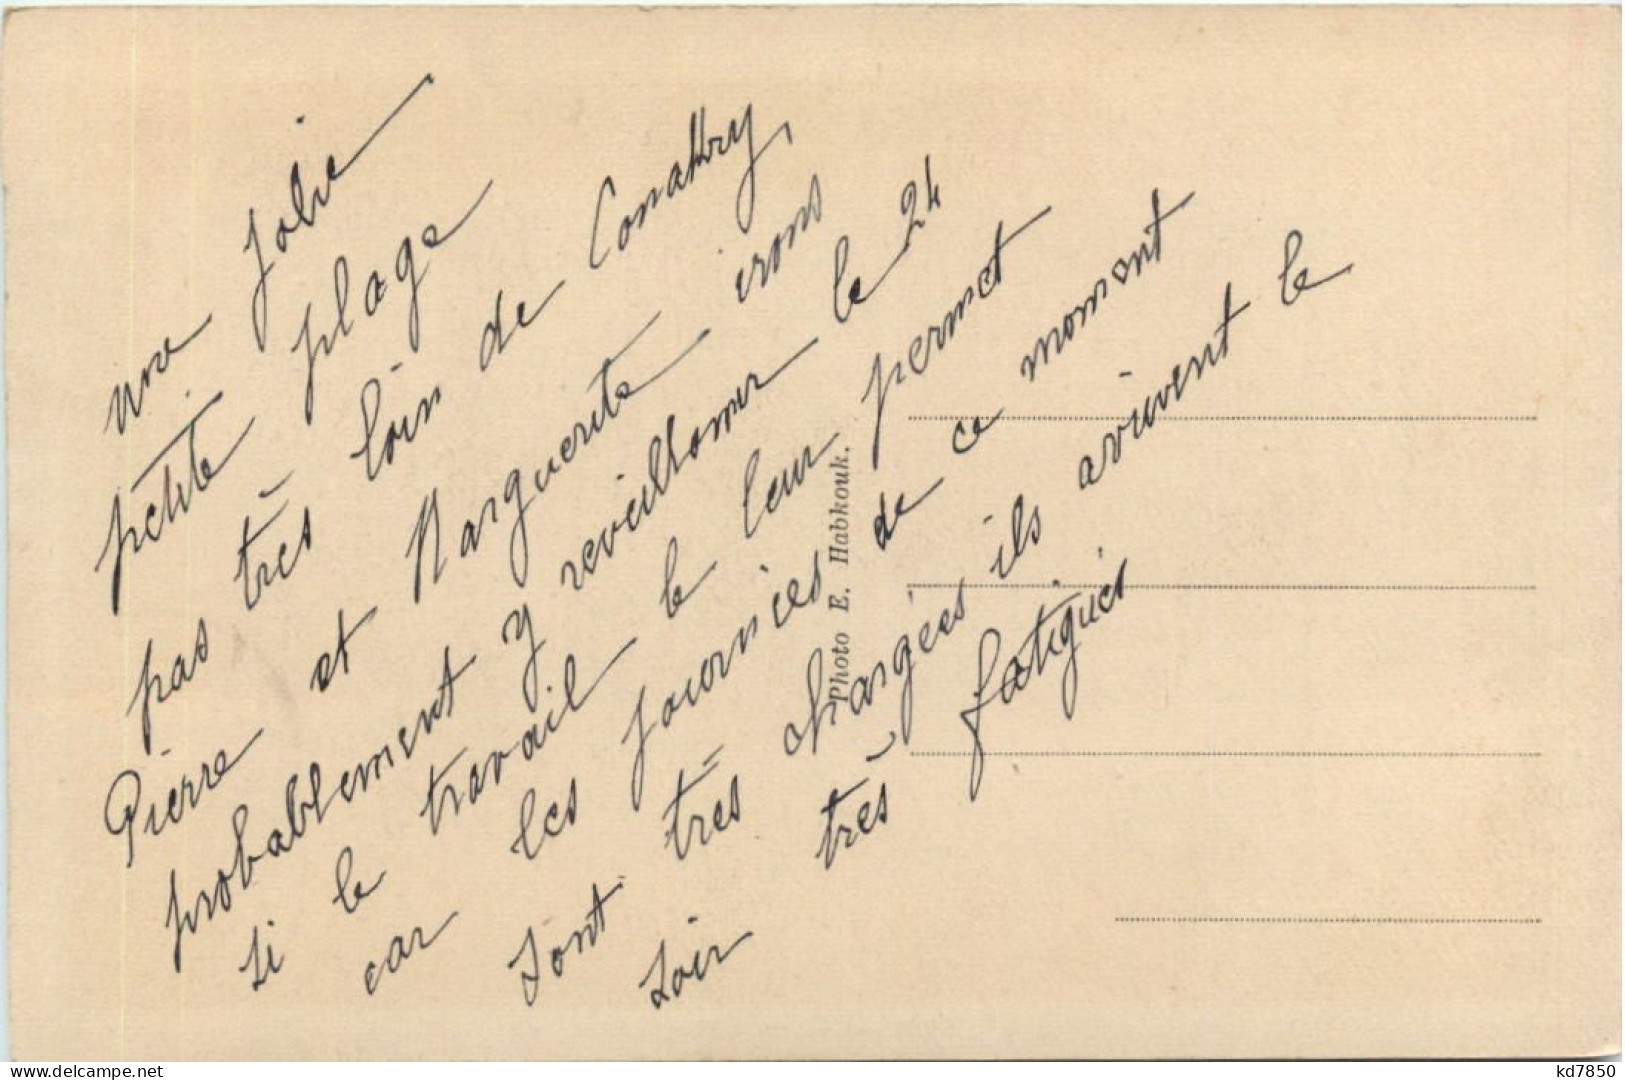 une jolie
petite plage
pas très loin de Conakry,
Pierre et Marguerite irons
probablement y reveillonner le 24
si le travail le leur permet
car les journées de ce moment
sont très chargées ils arrivent le
soir très fatigués
Photo E. Habkouk.
delcampe.net
kd7850